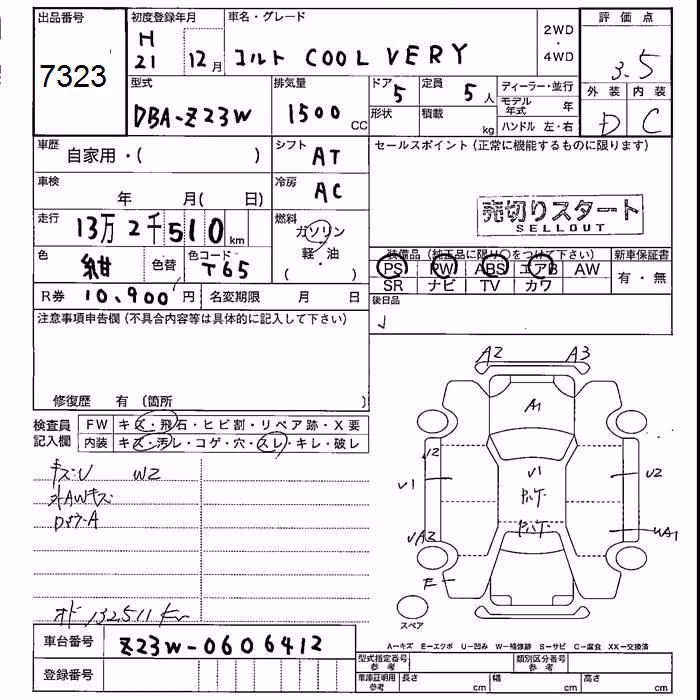 出品番号 初度登録年月 車名・グレード 2WD・4WD 評価点
7323 H21 12月 コルト COOL VERY 3.5
型式 排気量 ドア 5 定員 5人 ディーラー・並行 外装 内装
DBA-Z23W 1500CC 形状 積載 kg モデル年式 年 D C
ハンドル 左・右
車歴 自家用・( ) シフト AT セールスポイント(正常に機能するものに限ります)
車検 年 月( 日) 冷房 AC
売切りスタート
SELLOUT
走行 13万2千510km 燃料 ガソリン
軽・油
( )
色 紺 色替 色コード T65
装備品(純正品に限り○をつけて下さい) 新車保証書
PS PW ABS エアB AW 有・無
SR ナビ TV カワ
R券 10,900円 名変期限 月 日 後日品
注意事項申告欄(不具合内容等は具体的に記入して下さい)
修復歴 有 (箇所 )
検査員記入欄 FW キズ・飛石・ヒビ割・リペア跡・X要
内装 キズ・汚レ・コゲ・穴・スレ・キレ・破レ
キズ・U W2
外AWキズ
オド 132511km
A2 A3
A1
U2
U1 U1 U2
UA2 UA1
E
スペア
A−キズ E−エクボ U−凹み W−補修跡 S−サビ C−腐食 XX−交換済
車台番号 Z23W-0606412
登録番号
型式指定番号参考 類別区分番号参考
車庫証明用参考 長さ cm 幅 cm 高さ cm